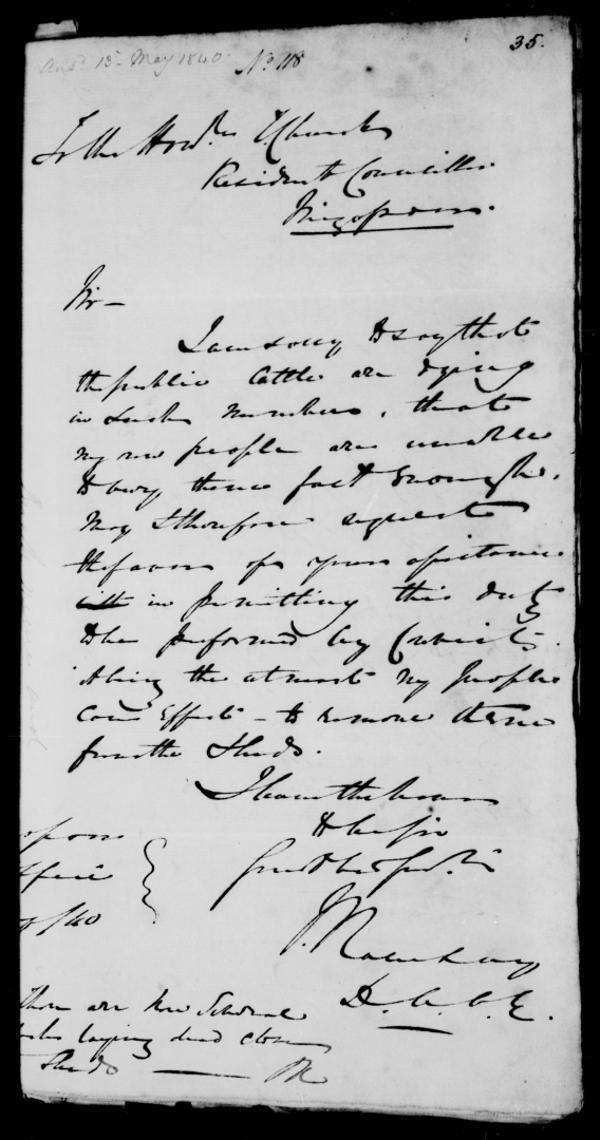 35.
Ansd. 15 May 1840. No. 118
To the Honble. T. Church
Resident Councillor
Singapore.
Sir—
I am sorry to say that
the public Cattle are dying
in such numbers, that
my people are unable
to bury them fast enough.
May I therefore request
the favor of your assistance
in permitting this duty
to be performed by Convicts.
it being the utmost my People
can effect - to remove them
from the Sheds.
I have the honor
to be Sir
Your Obt. Servt.
D. A. C. G.
There are now several
laying dead close
Sheds